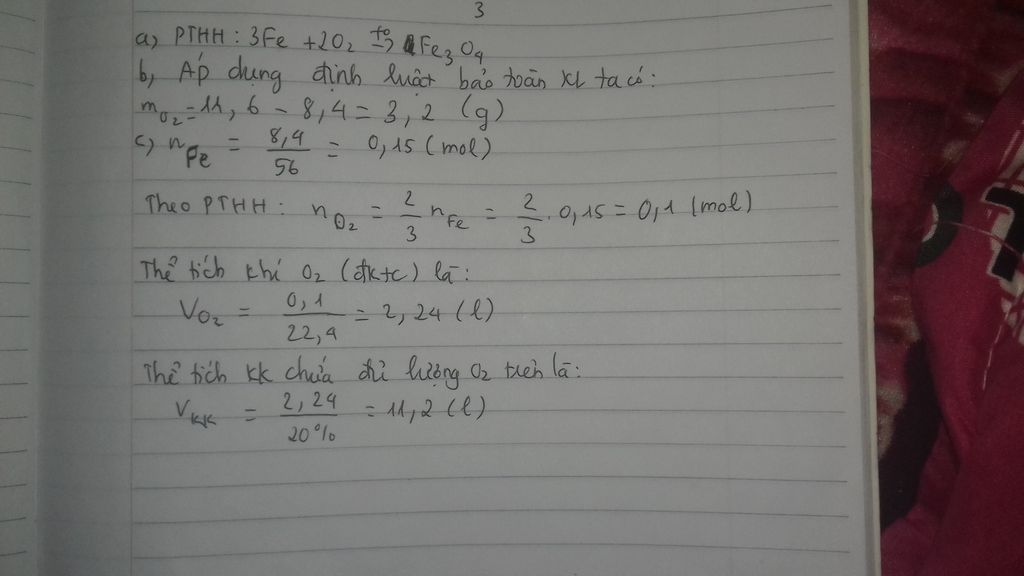 3
a) PTHH: 3Fe + 2O₂ →(t°) Fe₃O₄
b, Áp dụng định luật bảo toàn KL ta có:
m O₂ = 11,6 - 8,4 = 3,2 (g)
c, n Fe = 8,4/56 = 0,15 (mol)
Theo PTHH: n O₂ = 2/3 n Fe = 2/3 . 0,15 = 0,1 (mol)
Thể tích khí O₂ (đktc) là:
V O₂ = 0,1/22,4 = 2,24 (l)
Thể tích KK chứa đủ lượng O₂ trên là:
V KK = 2,24/20% = 11,2 (l)